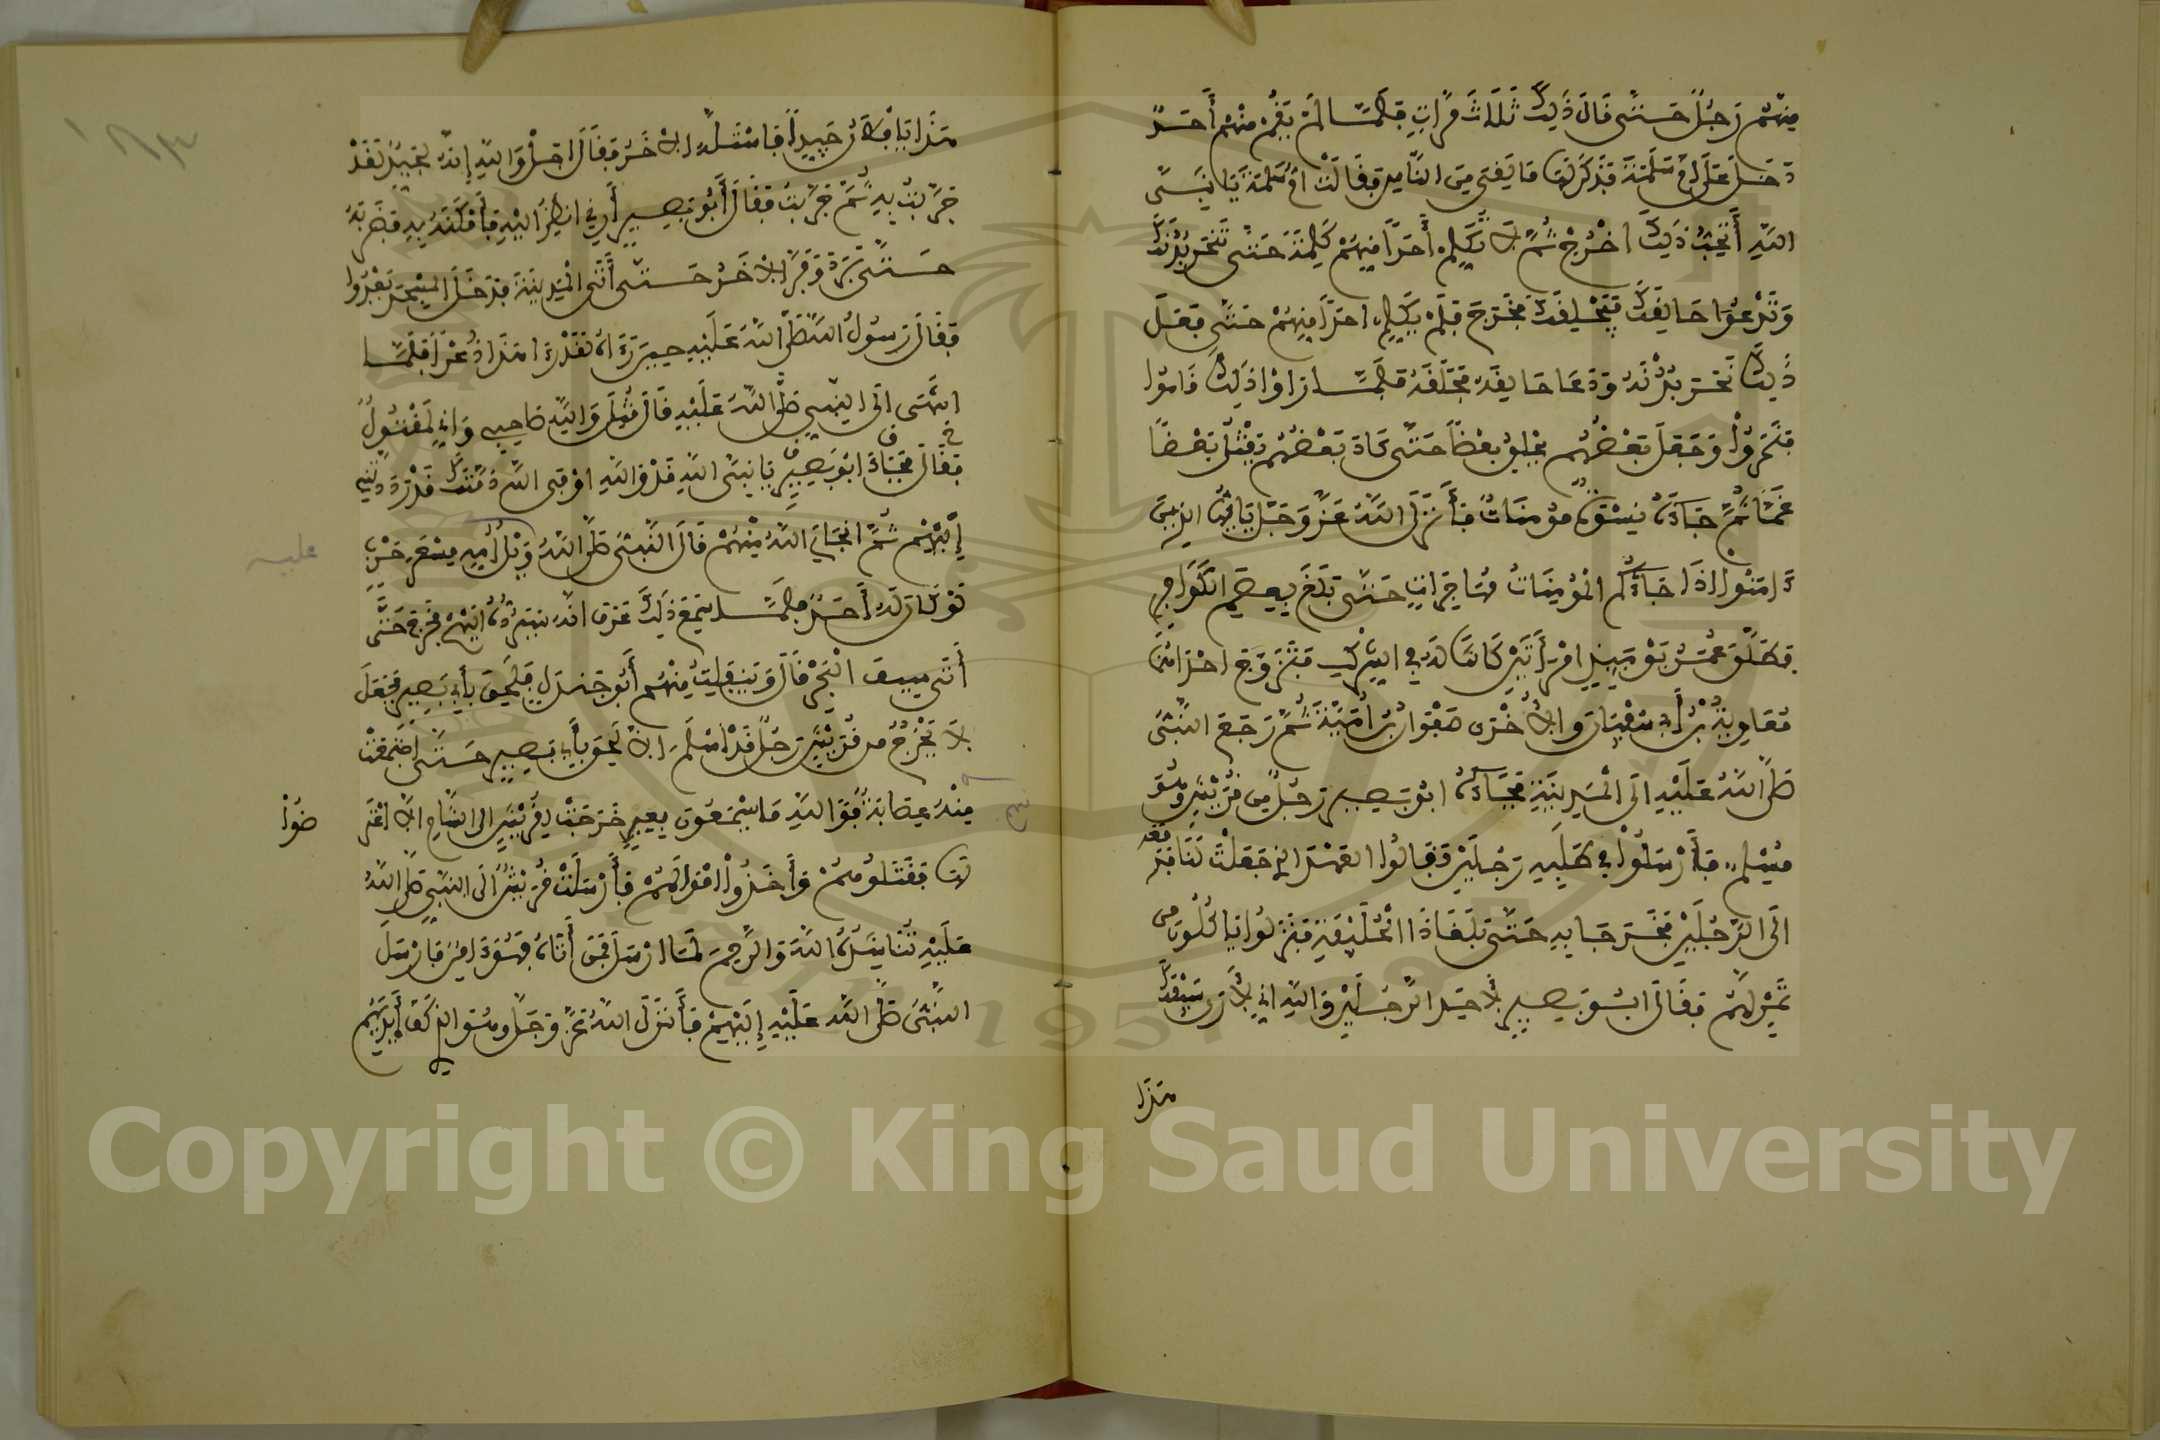 منهم رجل حتى قال ذلك ثلاث مرات فلما لم يقم منهم أحد
دخل على أم سلمة فذكر لها ما لقي من الناس فقالت أم سلمة يا نبي
الله أتحب ذلك اخرج ثم لا تكلم أحدا منهم كلمة حتى تنحر بدنك
وتدعوا حالقك فيحلقك فخرج فلم يكلم احدا منهم حتى فعل
ذلك نحر بدنه ودعا حالقه فحلقه فلما راوا ذلك قاموا
فنحروا وجعل بعضهم يحلق بعضا حتى كاد بعضهم يقتل بعضا
غما ثم جاءه نسوة مومنات فأنزل الله عز وجل يا أيها الذين
ءامنوا اذا جاءكم المومنات مهاجرات حتى بلغ بعصم الكوافر
فطلق عمر يوميذ امرأتين كانتا له في الشرك فتزوج احداهما
معاوية بن أبي سفيان والأخرى صفوان بن أمية ثم رجع النبي
صلى الله عليه الى المدينة فجاءه ابو بصير رجل من قريش وهو
مسلم فأرسلوا في طلبه رجلين فقالوا العهد الذي جعلت لنا فدفعه
الى الرجلين فخرجا به حتى بلغا ذا الحليفة فنزلوا ياكلون من
تمر لهم فقال ابو بصير لأحد الرجلين والله اني لأرى سيفك
هذا
هذا يا فلان جيدا فاستله الاخر فقال اجل والله إنه لجيد لقد
جربت به ثم جربت فقال أبو بصير أرني انظر اليه فأمكنه به فضربه
حتى برد وفر الاخر حتى أتى المدينة فدخل المسجد يعدوا
فقال رسول الله صلى الله عليه حين رءاه لقد رءا هذا ذعرا فلما
انتهى الى النبي صلى الله عليه قال قتل والله صاحبي واني لمقتول
فقال فجاء ابو بصير يا نبي الله قد والله اوفى الله ذمتك قد رددتني
إليهم ثم انجاني الله منهم قال النبي صلى الله ويل أمه مسعر حرب
عليه
لو كان له أحد فلما سمع ذلك عرف انه سيرده اليهم فخرج حتى
أتى سيف البحر قال وينفلت منهم أبو جندل فلحق بأبي بصير فجعل
لا يخرج من قريش رجل قد اسلم الا لحق بأبي بصير حتى اجتمعت
منهم عصابة فو الله ما يسمعون بعير خرجت لقريش الى الشام الا اعتر
ضوا
لها فقتلوهم وأخذوا اموالهم فأرسلت قريش الى النبي صلى الله
عليه تناشده الله والرحم لما ارسل فمن أتاه فهو ءامن فارسل
النبي صلى الله عليه إليهم فأنزل الله عز وجل وهو الذي كف أيديهم